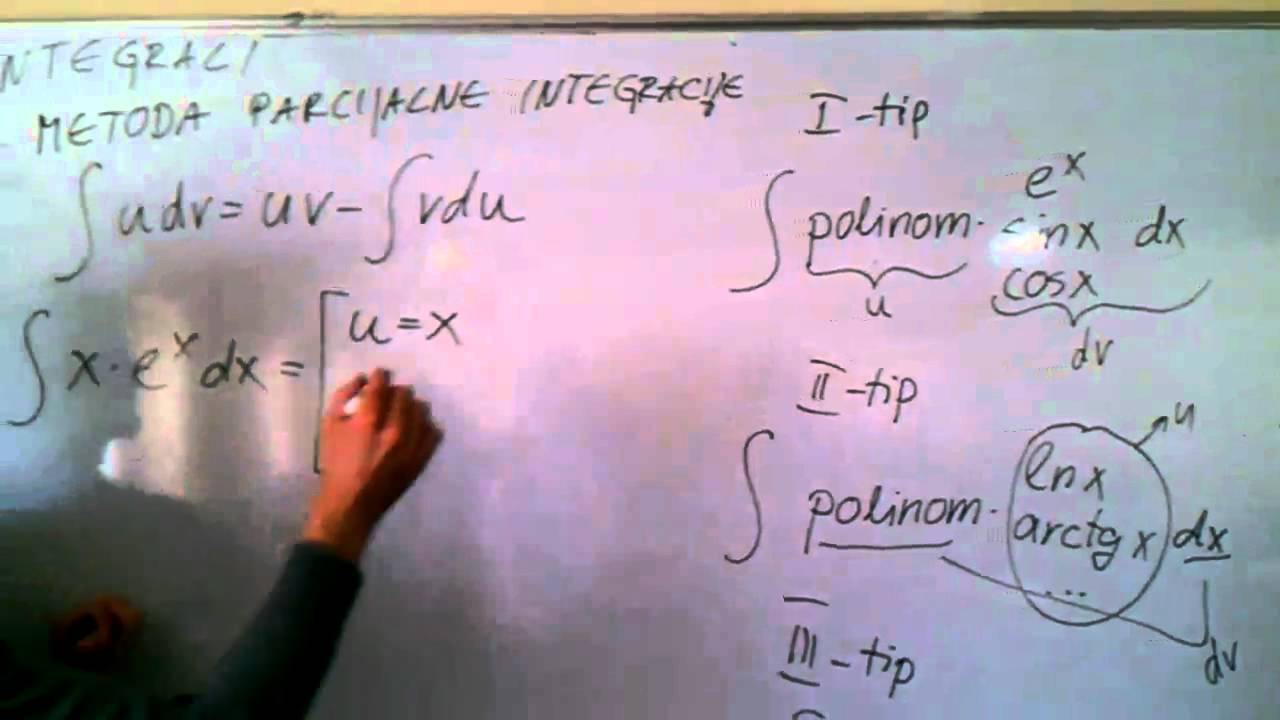 INTEGRACI
METODA PARCIJALNE INTEGRACIJE
∫ u dv = uv - ∫ v du
∫ x · e^x dx = [ u = x
I - tip
e^x
∫ polinom · sin x dx
cos x
u
dv
II - tip
u
ln x
∫ polinom · arctg x dx
...
dv
III - tip